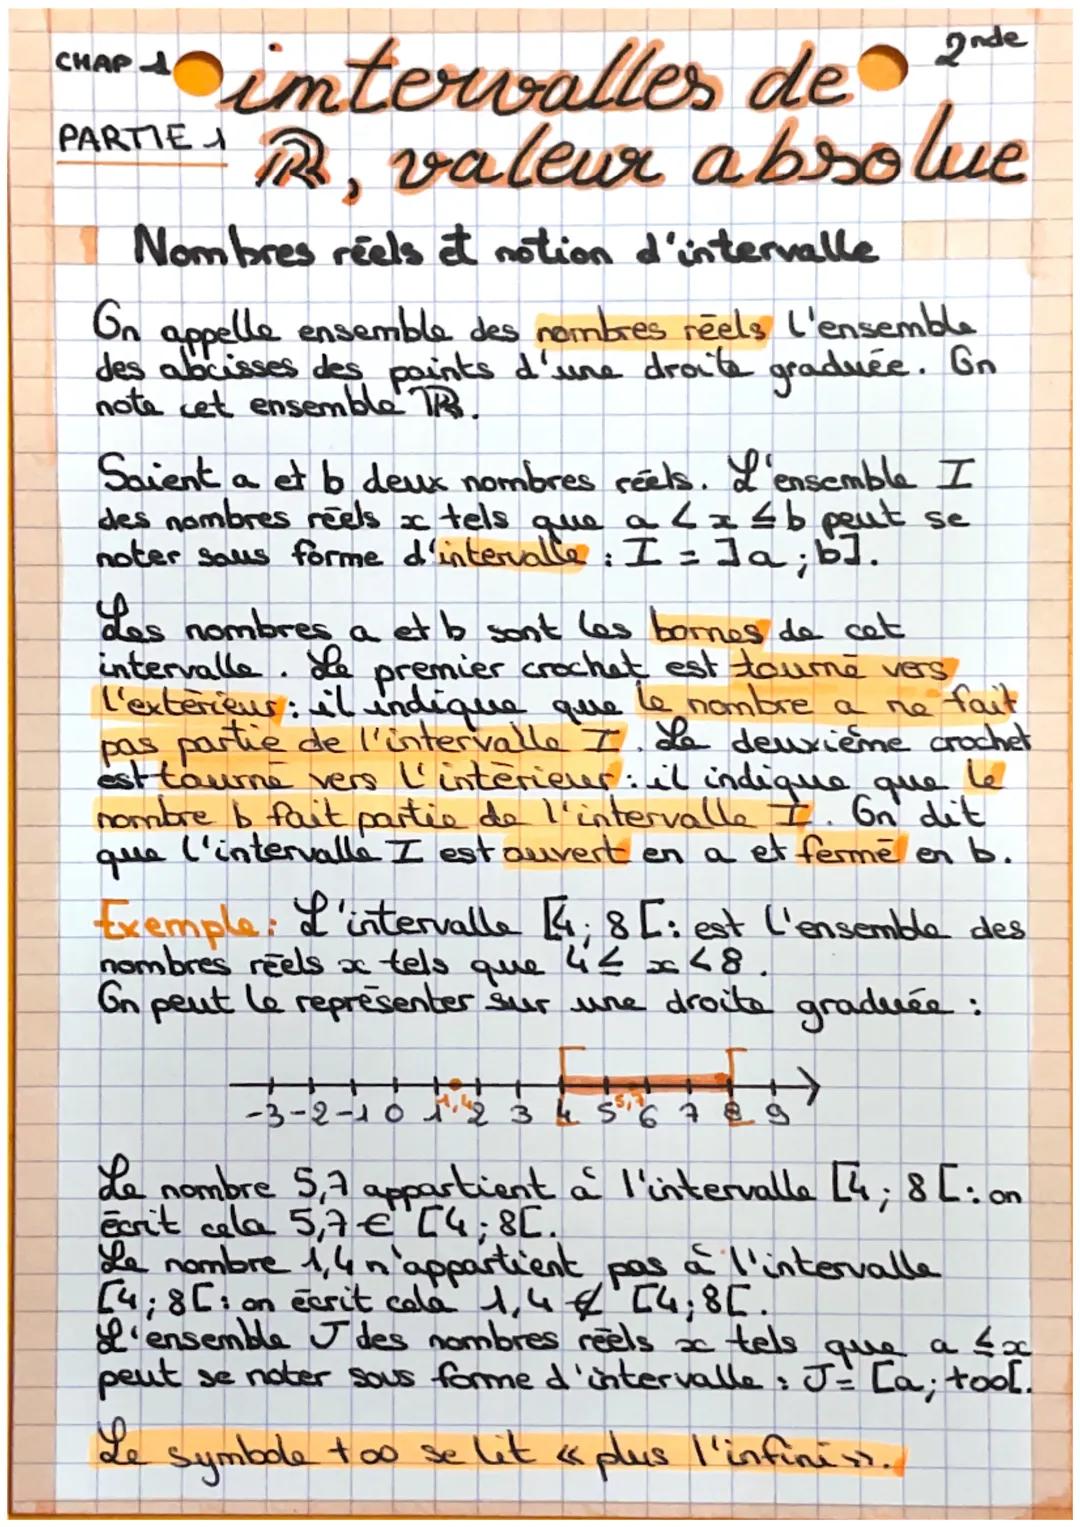 CHAP 1
PARTIE 1
2nde
intervalles de
ℝ, valeur absolue
Nombres réels et notion d'intervalle
On appelle ensemble des nombres réels l'ensemble
des abcisses des points d'une droite graduée. On
note cet ensemble ℝ.
Soient a et b deux nombres réels. L'ensemble I
des nombres réels x tels que a < x ≤ b peut se
noter sous forme d'intervalle : I = ]a ; b].
Les nombres a et b sont les bornes de cet
intervalle. Le premier crochet est tourné vers
l'extérieur : il indique que le nombre a ne fait
pas partie de l'intervalle I. Le deuxième crochet
est tourné vers l'intérieur : il indique que le
nombre b fait partie de l'intervalle I. On dit
que l'intervalle I est ouvert en a et fermé en b.
Exemple : L'intervalle [4 ; 8 [ : est l'ensemble des
nombres réels x tels que 4 ≤ x < 8.
On peut le représenter sur une droite graduée :
-3 -2 -1 0 1 1,4 2 3 4 5 5,7 6 7 8 9
Le nombre 5,7 appartient à l'intervalle [4 ; 8 [ : on
écrit cela 5,7 ∈ [4 ; 8[.
Le nombre 1,4 n'appartient pas à l'intervalle
[4 ; 8[ : on écrit cela 1,4 ∉ [4 ; 8[.
L'ensemble J des nombres réels x tels que a ≤ x
peut se noter sous forme d'intervalle : J = [a ; +∞[.
Le symbole +∞ se lit « plus l'infini ».